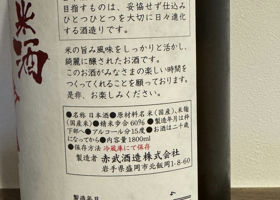 米酒
目指すものは、妥協せず仕込み
ひとつひとつを大切に日々進化
する酒造りです。
米の旨み風味をしっかりと活かし、
綺麗に醸されたお酒です。
このお酒がみなさまの楽しい時間を
つくってくれることを願っております。
是非、お楽しみください。
●名称 日本酒 ●原材料名 米(国産)、米麹
(国産米) ●精米歩合60% ●製造年月は枠
下部へ ●アルコール分15度 ●お酒は二十歳
になってから ●内容量1800ml
●保存方法 冷蔵庫にて保存
製造者 赤武酒造株式会社
岩手県盛岡市北飯岡1-8-60
製造年月